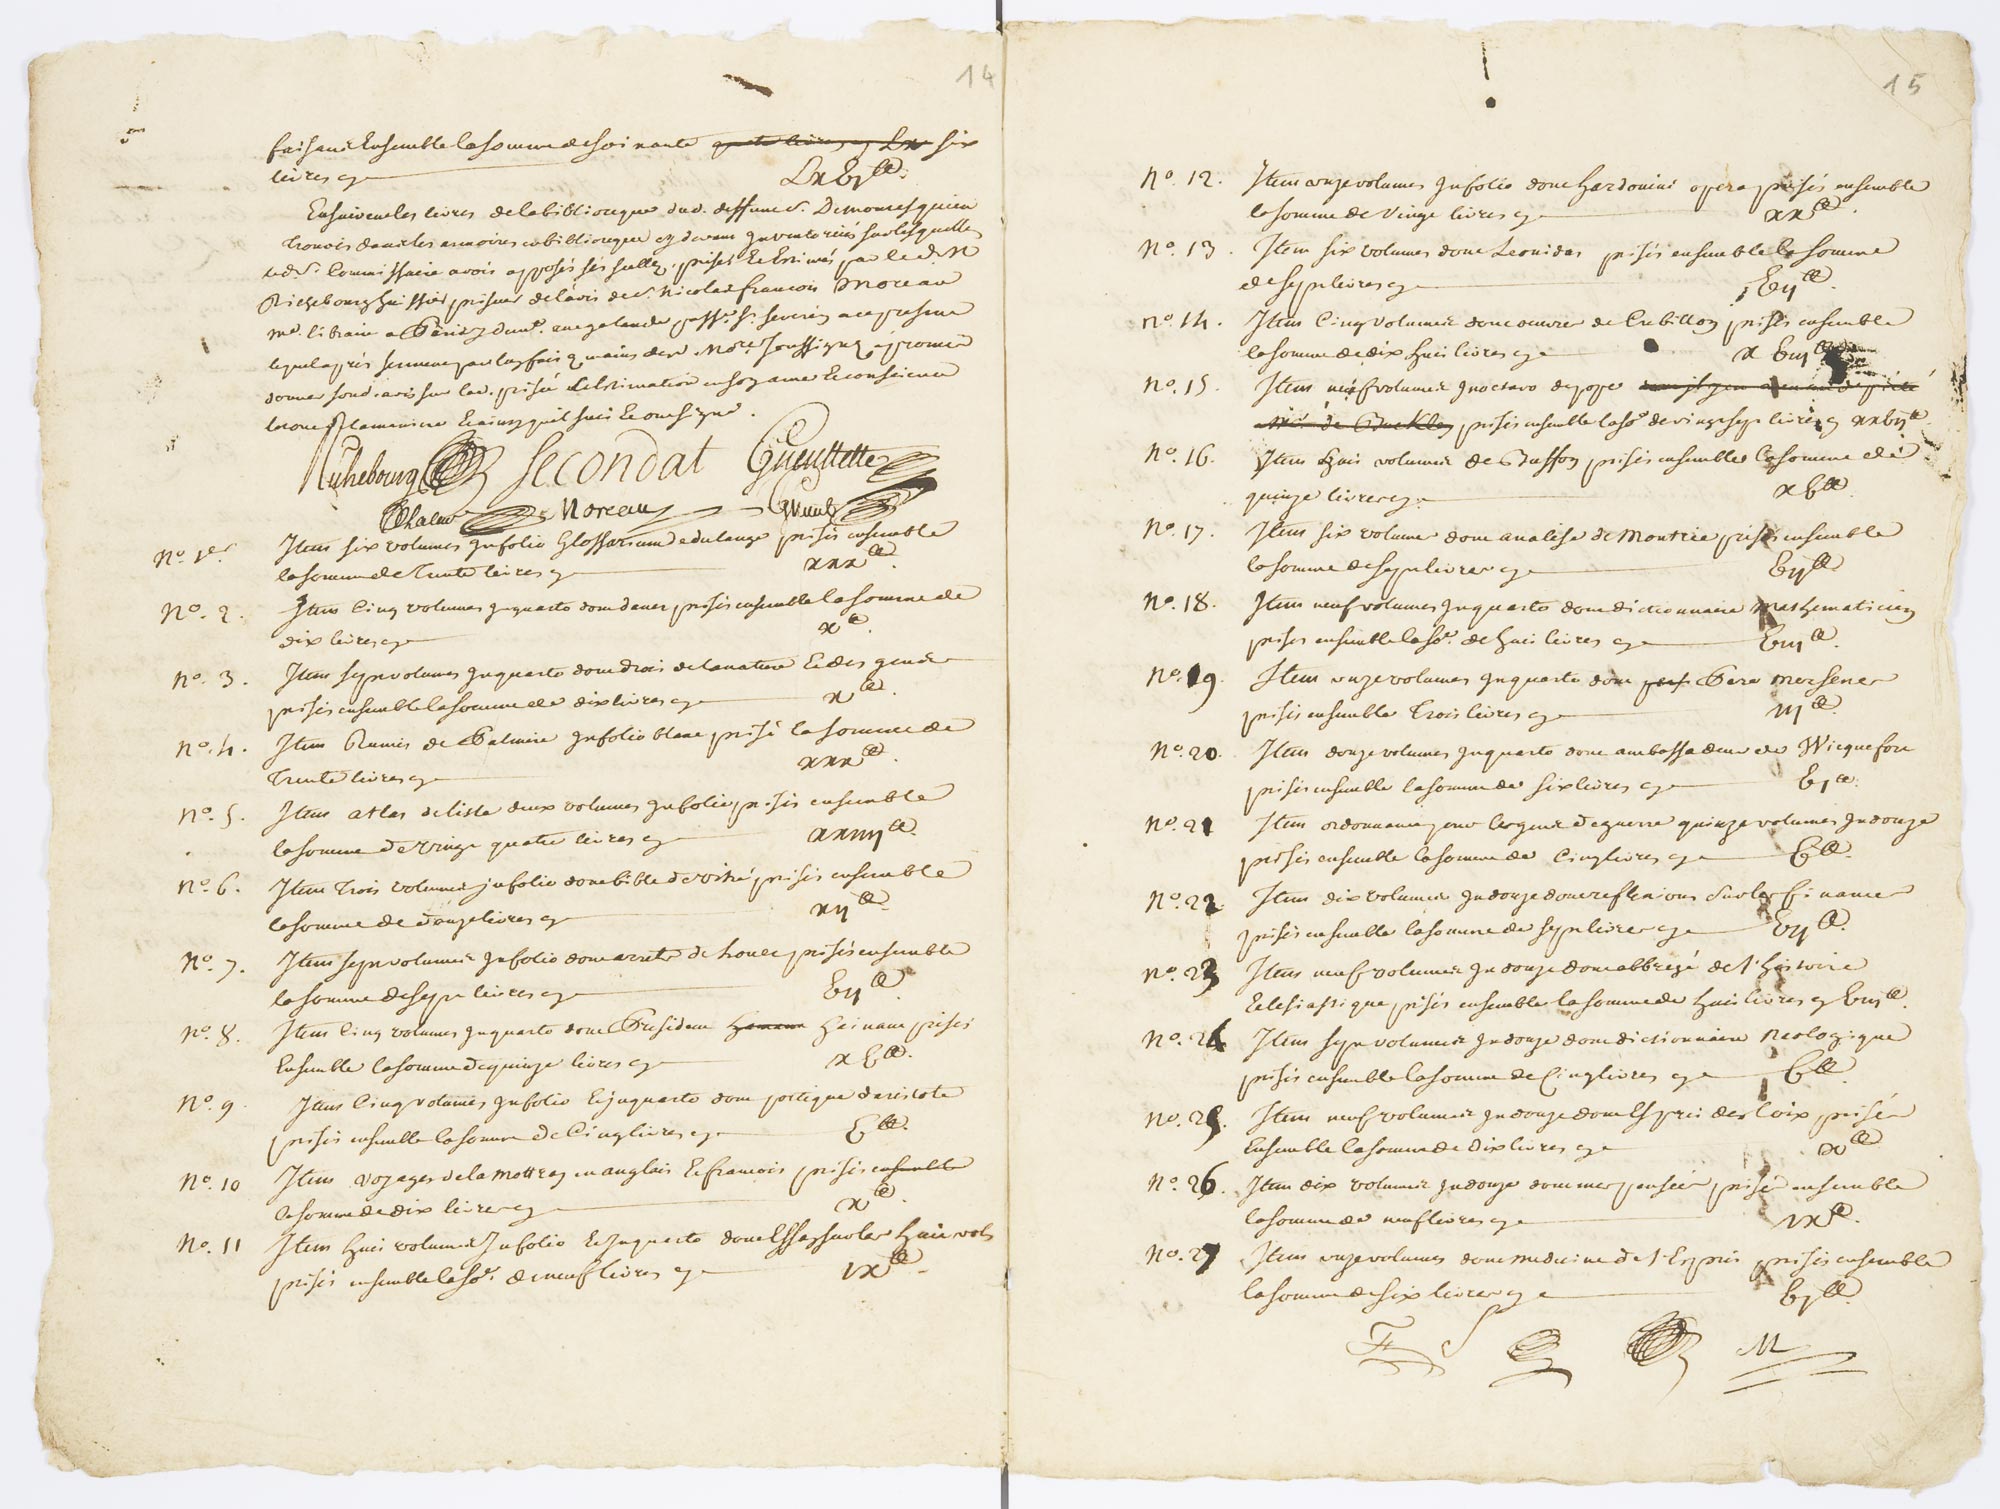 14
faisant Ensemble la somme de soixante quatre livres cy Lx six
livres cy Lxbjll.
Ensuivent les livres de la biblioteque dud. deffunt s. De montesquieu
trouvés dans les armoires en biblioteque cy devant Inventoriées sur lesquelles
led. s. Commissaire avoit apposés ses scellez. prisés Et Estimés par led. s.
Richebourg huissier priseur de lavis de s. Nicolas francois Moreau
md. libraire a Paris y demt. rue galande passe. st. severin a ce present
lequel apres serment par luy fait es mains de Me. soussigné a promis
donner son avis sur lad. prisée Et Estimation en son ame Et conscience
le tout Et ainsy quil suit Et ont signé.
Richebourg Secondat Gueullette
Moreau
No. 1er. Item six volumes Infolio Glossarium ducange prisés ensemble
la somme de Trente livres cy xxxll.
No. 2. Item Cinq volumes Inquarto dont danet prisés ensemble la somme de
dix livres cy xll.
No. 3. Item sept volumes Inquarto dont droit de la nature Et des gens
prisés ensemble la somme de dix livres cy xll.
No. 4. Item Ruines de Palmire Infolio blanc prisé la somme de
Trente livres cy xxxll.
No. 5. Item atlas de lisle deux volumes Infolio prisés ensemble
la somme de vingt quatre livres cy xxiiijll.
No. 6. Item trois volumes Infolio dont bible de vitré prisés ensemble
la somme de douze livres cy xijll.
No. 7. Item sept volumes Infolio dont arrets de louet prisés ensemble
la somme de sept livres cy bijll.
No. 8. Item Cinq volumes Inquarto dont President Henaut prisés
Ensemble la somme de quinze livres cy xbll.
No. 9. Item Cinq volumes Infolio Et Inquarto dont poetique daristote
prisés ensemble la somme de Cinq livres cy bll.
No. 10 Item voyages de la mottray en anglais Et francois prisés ensemble
la somme de dix livres cy xll.
No. 11 Item huit volumes Infolio Et Inquarto dont Essay sur les huit vols
prisés ensemble la so. de neuf livres cy ixll.
15
No. 12. Item onze volumes Infolio dont hardouini opera prisés ensemble
la somme de vingt livres cy xxll.
No. 13. Item six volumes dont Leonidas prisés ensemble la somme
de sept livres cy bijll.
No. 14. Item Cinq volumes dont oeuvres de Crebillon prisés ensemble
la somme de dix huit livres cy xbiijll.
No. 15. Item neuf volumes Inoctavo de pope
prisés ensemble la so. de vingt sept livres cy xxbijll.
No. 16. Item huit volumes de Buffon prisés ensemble la somme de
quinze livres cy xbll.
No. 17. Item six volumes dont analise de Montrée prisés ensemble
la somme de sept livres cy bijll.
No. 18. Item neuf volumes Inquarto dont dictionnaire mathematicien
prisés ensemble la so. de huit livres cy biijll.
No. 19. Item onze volumes Inquarto dont Pere mersene
prisés ensemble Trois livres cy iijll.
No. 20. Item douze volumes Inquarto dont ambassadeur de Wicquefort
prisés ensemble la somme de six livres cy bjll.
No. 21 Item ordonnances pour les gens de guerre quinze volumes Indouze
prisés ensemble la somme de Cinq livres cy bll.
No. 22. Item dix volumes Indouze dont reflexions sur les finances
prisés ensemble la somme de sept livres cy bijll.
No. 23 Item neuf volumes Indouze dont abbregé de l'histoire
Eclesiastique prisés ensemble la somme de huit livres cy biijll.
No. 24 Item sept volumes Indouze dont dictionnaire Neologique
prisés ensemble la somme de Cinq livres cy bll.
No. 25. Item neuf volumes Indouze dont Esprit des Loix prisés
Ensemble la somme de dix livres cy xll.
No. 26. Item dix volumes Indouze dont mes pensées prisés ensemble
la somme de neuf livres cy ixll.
No. 27 Item onze volumes dont medecine de l'Esprit prisés ensemble
la somme de six livres cy bjll.
M